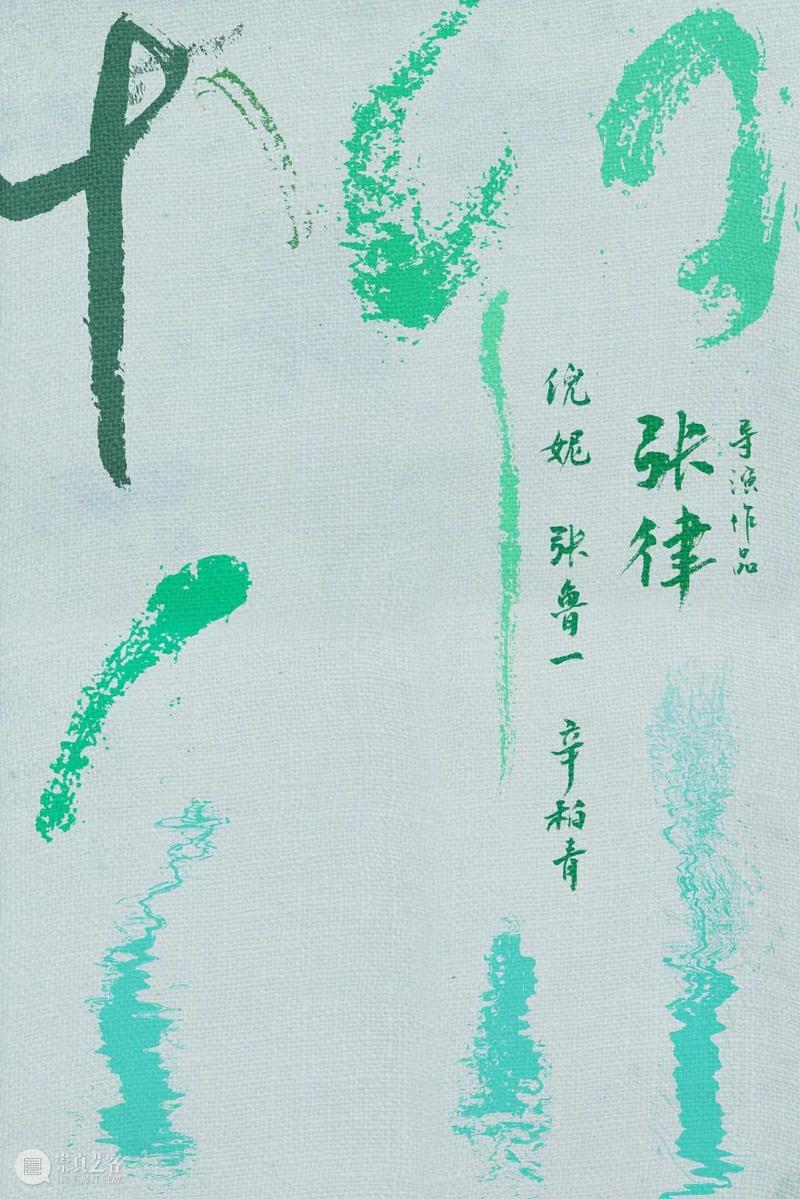 柳川
导演作品
张律
倪妮 张鲁一 辛柏青
崇真艺客